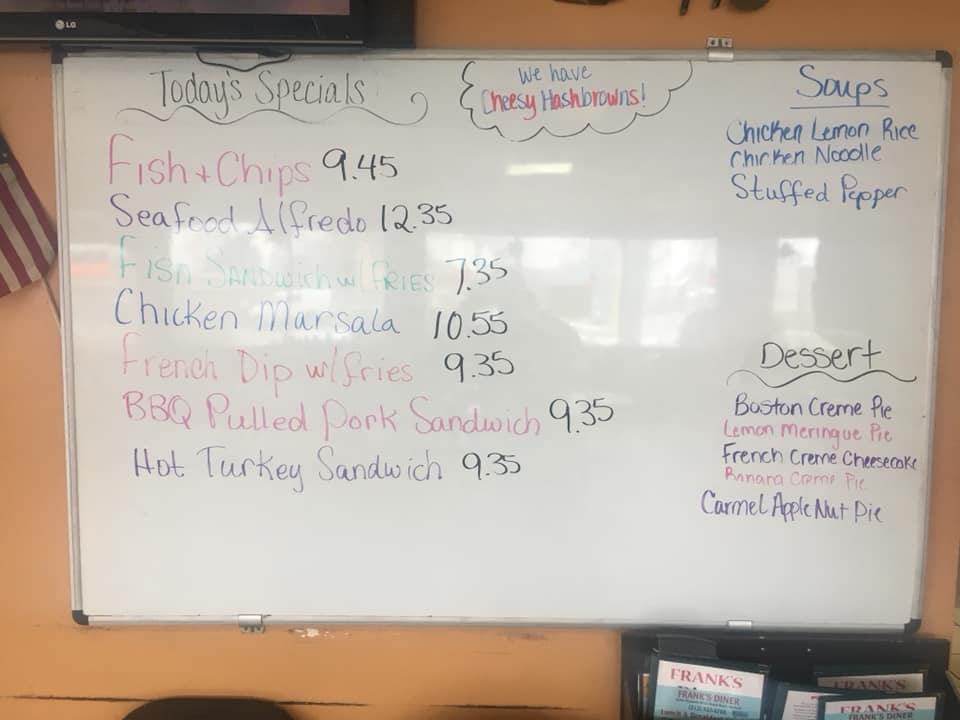 LG
Today's Specials
We have
Cheesy Hashbrowns!
Fish + Chips 9.45
Seafood Alfredo 12.35
Fish Sandwich w/ fries 7.35
Chicken Marsala 10.55
French Dip w/fries 9.35
BBQ Pulled Pork Sandwich 9.35
Hot Turkey Sandwich 9.35
Soups
Chicken Lemon Rice
Chicken Noodle
Stuffed Pepper
Dessert
Boston Creme Pie
Lemon Meringue Pie
French Creme Cheesecake
Banana Creme Pie
Carmel Apple Nut Pie
FRANK'S
FRANK'S DINER
FRANK'S
FRANK'S
FRANK'S DINER